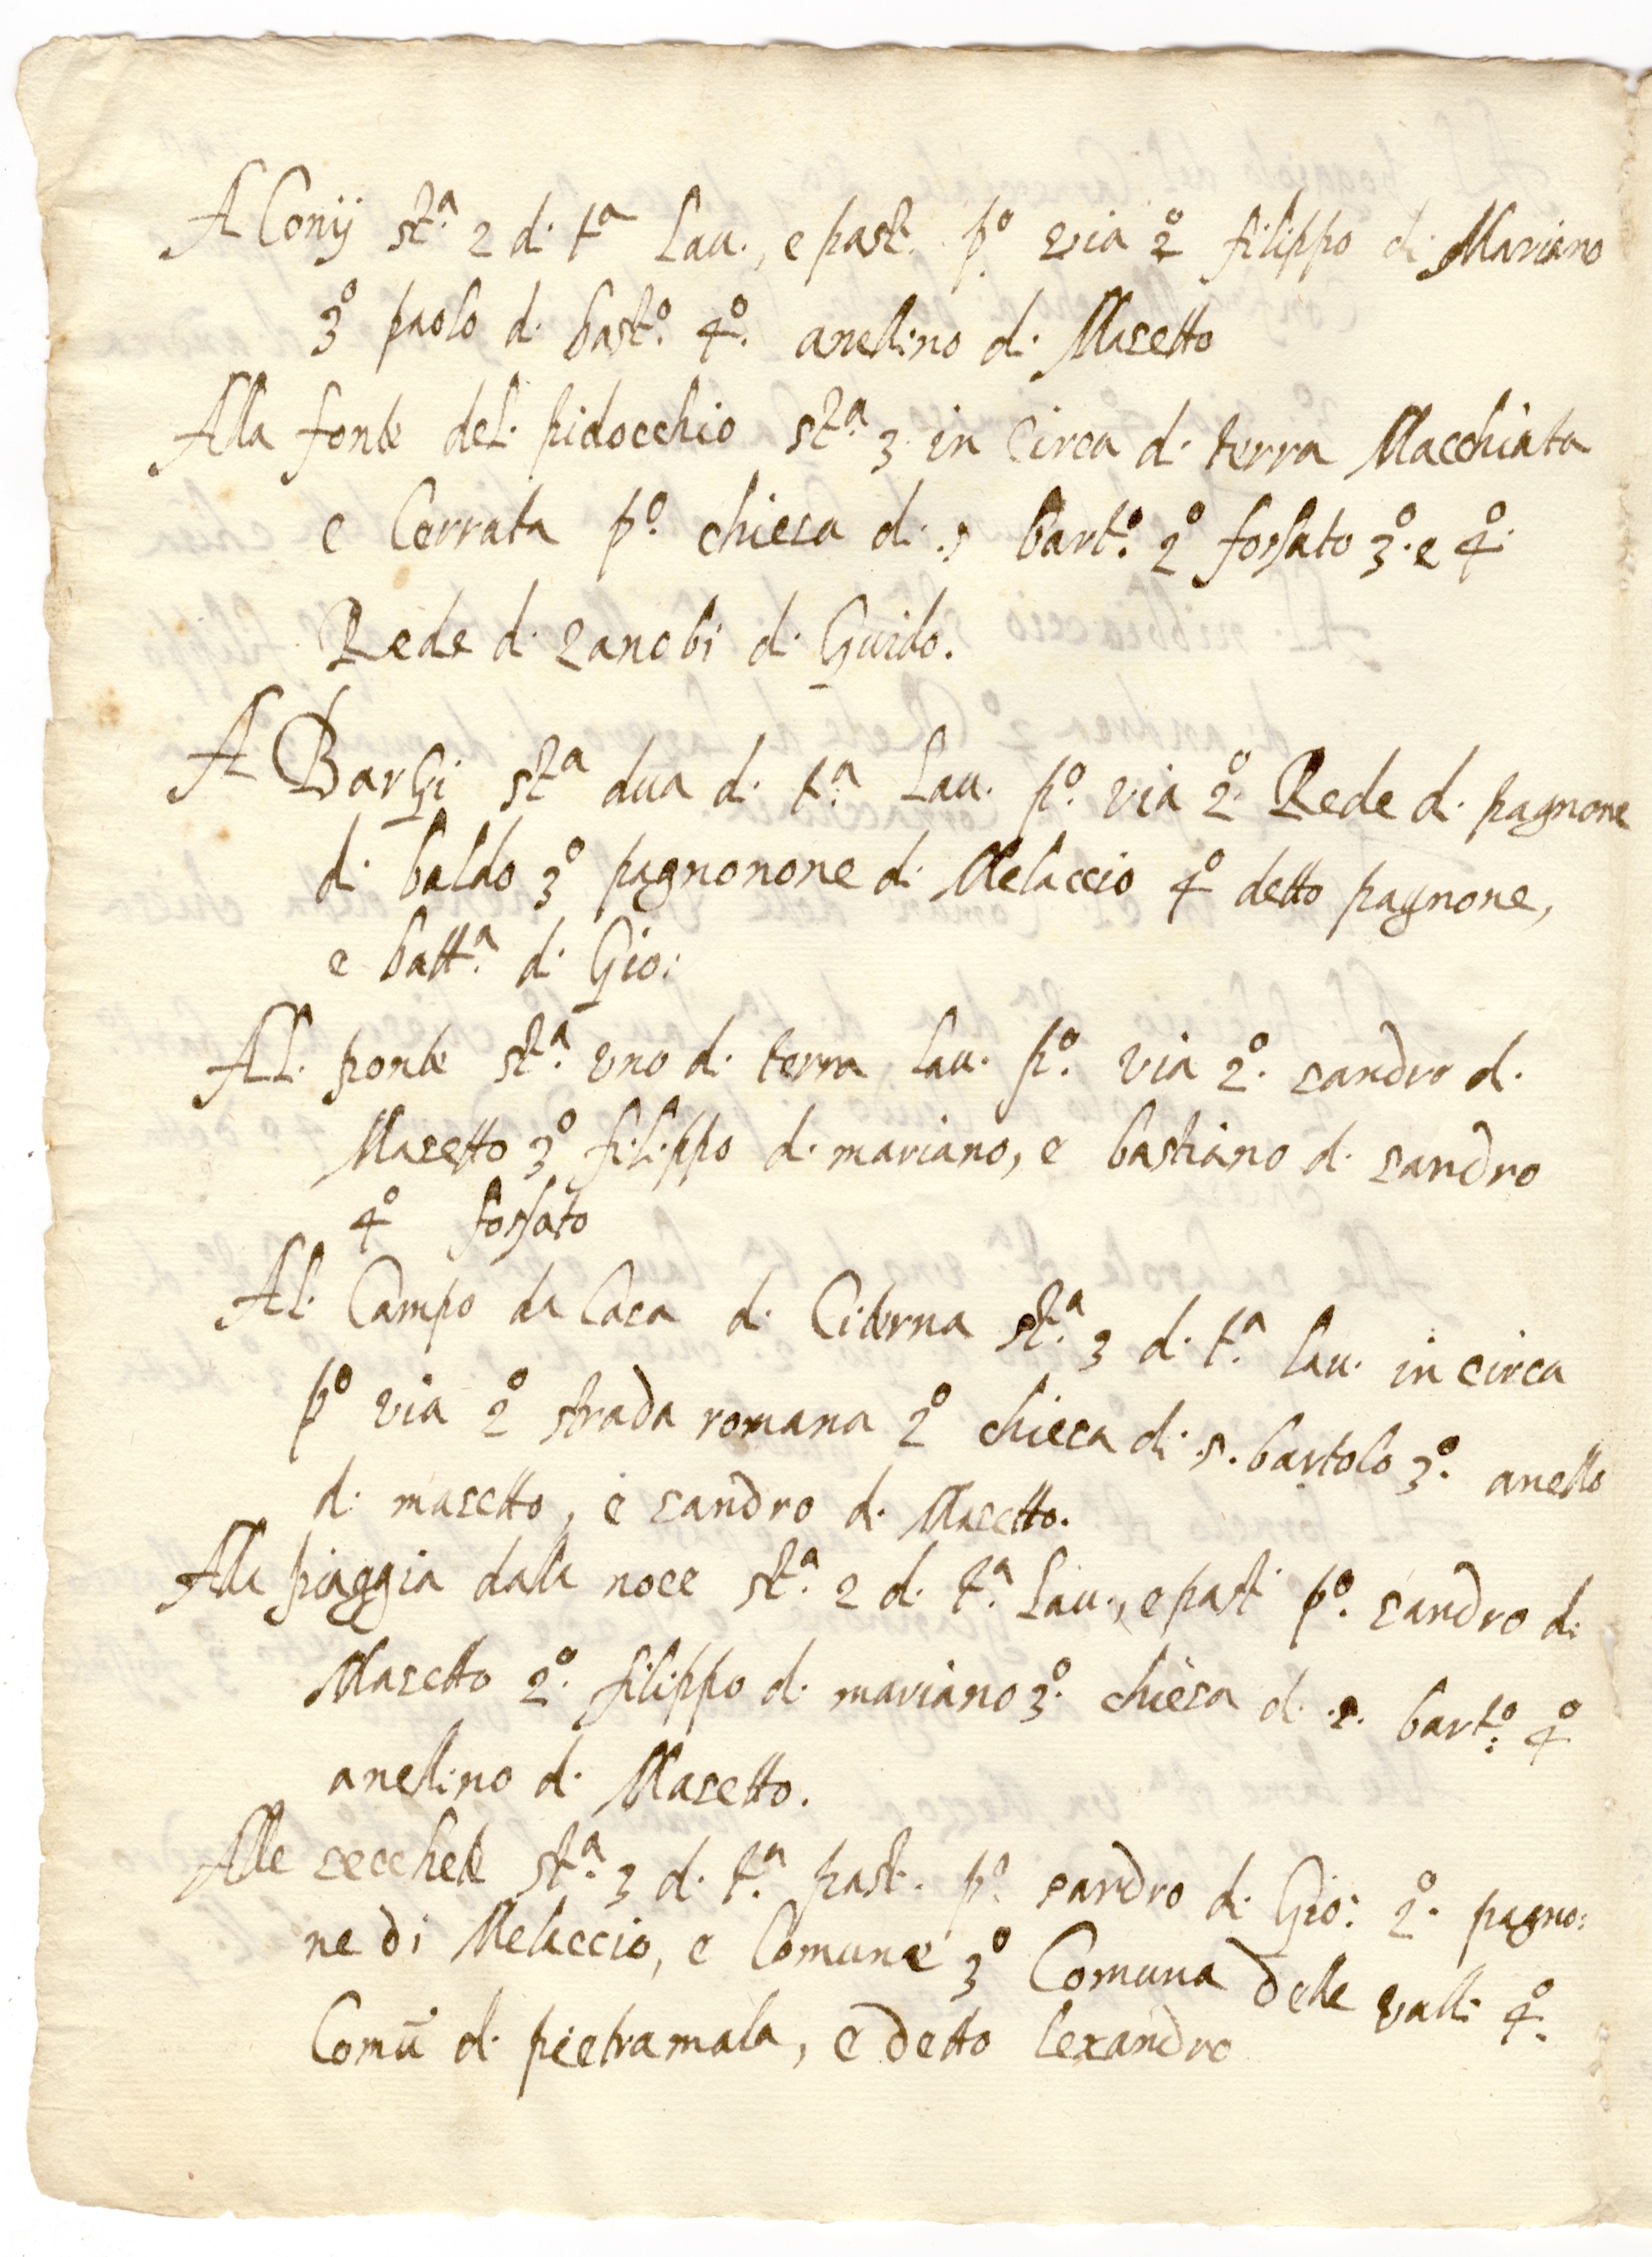 A Conij st.ª 2 di t.ª Lau., e past. p.º via 2º filippo di Mariano
3º paolo di bast.º 4º. anelino di Masetto
Alla fonte del pidocchio st.ª 3 in Circa di terra Macchiata
e Cerrata p.º chiesa di .s bart.º 2º fossato 3º. e 4º.
Rede di zanobi di Guido.
A Bargi st.ª dua di t.ª Lau. p.º via 2º. Rede di pagnone
di baldo 3º pagnonone di Melaccio 4º detto pagnone,
e batt.ª di Gio:
Al ponte st.ª uno di terra lau. p.º via 2º. sandro di
Masetto 3º filippo di mariano, e bastiano di sandro
4º fossato
Al Campo da Casa di Citerna st.ª 3 di t.ª lau. in circa
p.º via 2º strada romana 2º chiesa di .s. bartolo 3º. anello
di masetto, e sandro di Masetto.
Alla piaggia dala noce st.ª 2 di t.ª Lau., e past p.º sandro di
Masetto 2º. filippo di mariano 3º. chiesa di .s. bart.º 4º
anelino di Masetto.
Alle secchete st.ª 3 di t.ª past. p.º sandro di Gio: 2º. pagno:
ne di Melaccio, e Comune 3º Comuna delle valli 4º.
Comū di pietramala, e detto lexandro